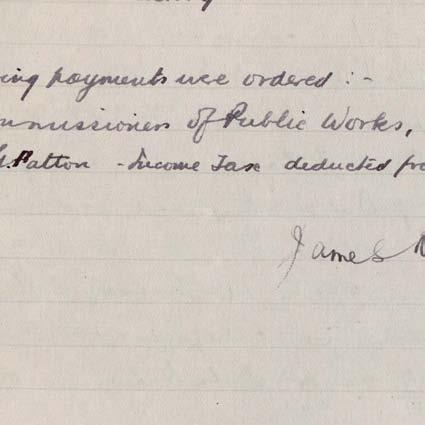 ing payments were ordered :-
mmissioners of Public Works,
Patton - Income Tax deducted fro
James